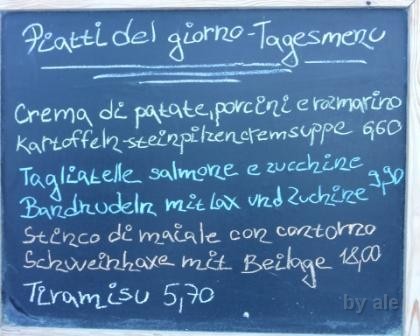 Piatti del giorno - Tagesmenu
Crema di patate, porcini e rozmarino
Kartoffeln-steinpilzencremsuppe 6,60
Tagliatelle salmone e zucchine
Bandnudeln mit Lax und Zuchine 9,90
Stinco di maiale con contorno
Schweinhaxe mit Beilage 18,00
Tiramisu 5,70
by ale